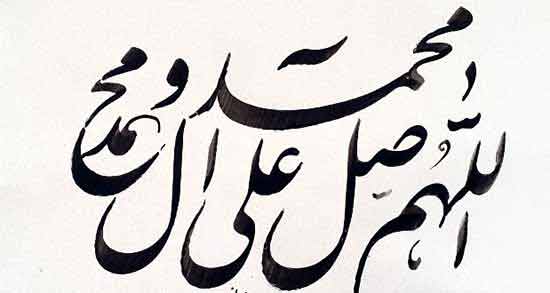 اللّهم صل علی محمد و آل محمد